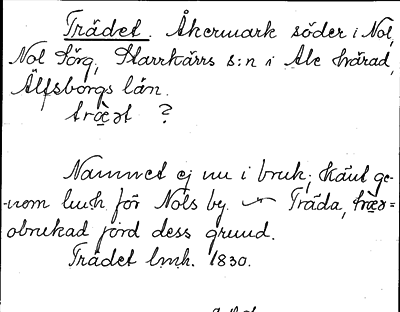 Trädet. Åkermark söder i Nol,
Nol Sörg, Starrkärrs s:n i Ale härad,
Älfsborgs län.
trä̀ət ?
Namnet ej nu i bruk; känt ge-
nom lmh för Nols by. Träda, träə=
obrukad jord dess grund.
Trädet lmh. 1830.